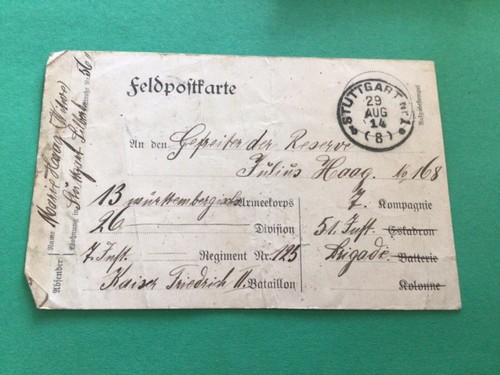 Feldpostkarte
STUTTGART Nr. 1
29
AUG
14
( 8 )
An den Gefreiter der Reserve
Julius Haag. No 168
13 württembergisch Armeekorps 7. Kompagnie
26 Division 51. Inft. Eskadron
7. Inft. Regiment Nr. 125 Brigade Batterie
Kaiser Friedrich Bataillon Kolonne
Absender: Name Marie Haag
Wohnung in Stuttgart